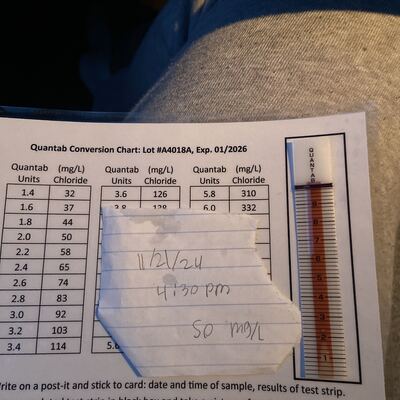 Quantab Conversion Chart: Lot #A4018A, Exp. 01/2026
Quantab (mg/L) Quantab (mg/L) Quantab (mg/L)
Units Chloride Units Chloride Units Chloride
1.4 32 3.6 126 5.8 310
1.6 37 3.8 138 6.0 332
1.8 44
2.0 50
2.2 58
2.4 65
2.6 74
2.8 83
3.0 92
3.2 103
3.4 114
11/21/24
4:30 pm
50 mg/L
QUANTAB
9
8
7
6
5
4
3
2
1
rite on a post-it and stick to card: date and time of sample, results of test strip.